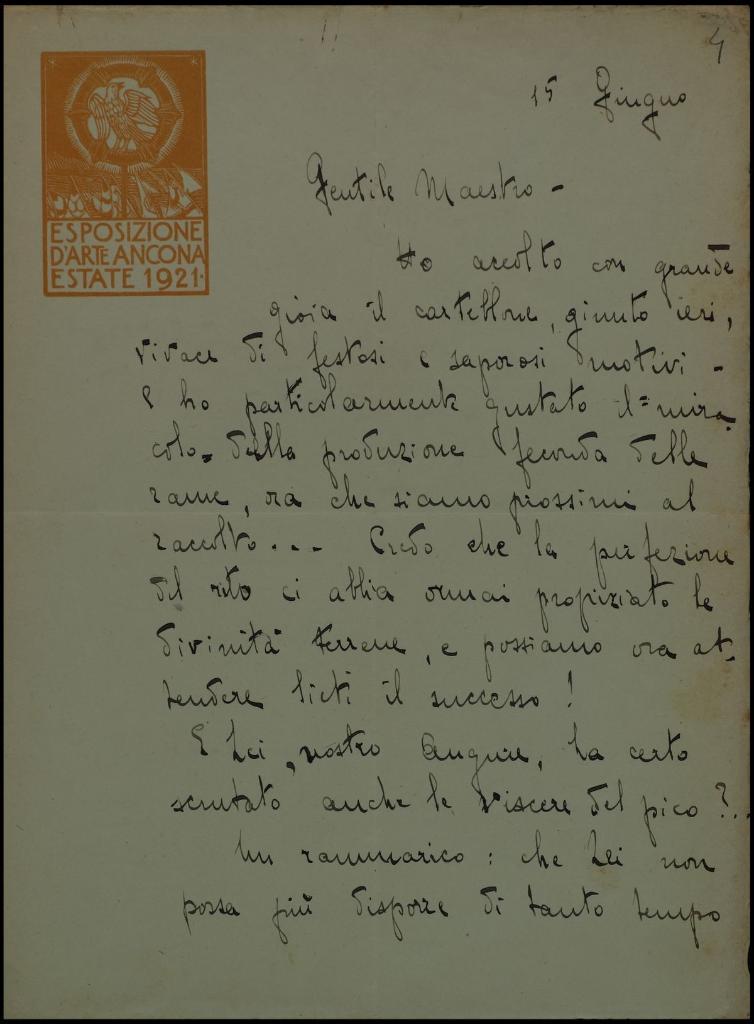 4
15 Giugno
ESPOSIZIONE
D'ARTE ANCONA
ESTATE 1921.
Gentile Maestro -
Ho accolto con grande
gioia il cartellone, giunto ieri,
vivace di festosi e saporosi motivi -
E ho particolarmente gustato il "mira-
colo" della produzione feconda delle
rame, ora che siamo prossimi al
raccolto... Credo che la perfezione
del rito ci abbia ormai propiziato le
divinità terrene, e possiamo ora at-
tendere lieti il successo!
E Lei, nostro Augure, ha certo
scrutato anche le viscere del pico?..
Un rammarico: che Lei non
possa più disporre di tanto tempo